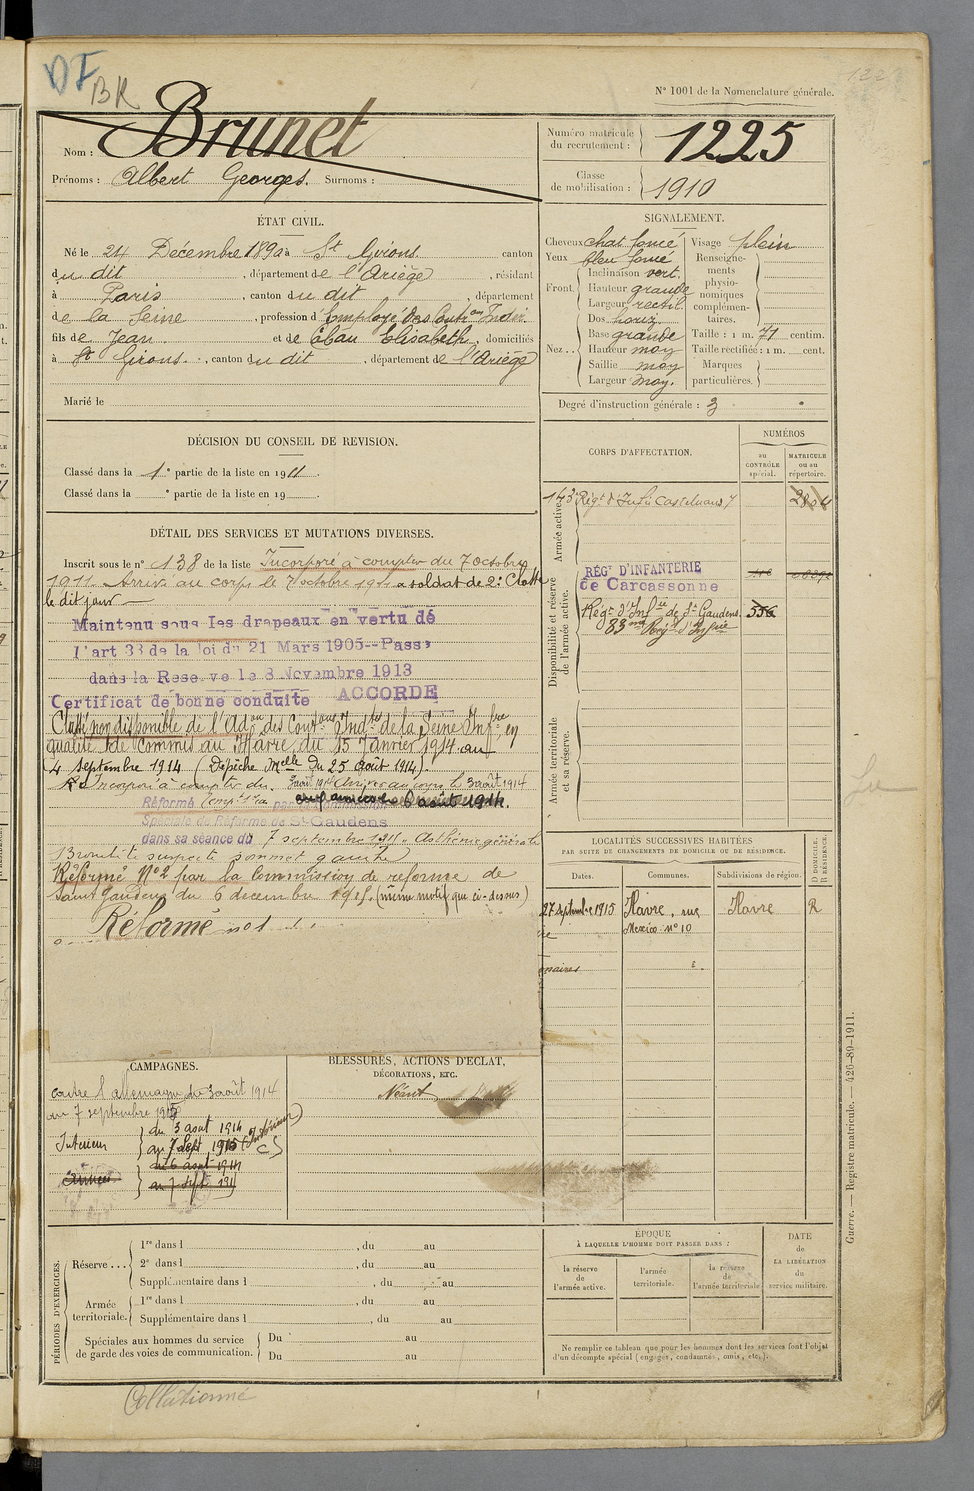 DI
BR
N° 1001 de la Nomenclature générale.
Nom : Brunet
Prénoms : Albert Georges. Surnoms :
Numéro matricule du recrutement : 1225
Classe de mobilisation : 1910
ÉTAT CIVIL.
Né le 24 Décembre 1890 à St Girons canton
du dit, département de l'Ariège, résidant
à Paris, canton du dit, département
de la Seine, profession d'Employé des Contr.ons Indir.
fils de Jean et de Elisabeth, domiciliés
à St Girons, canton du dit, département de l'Ariège
Marié le
SIGNALEMENT.
Cheveux chat. foncé
Yeux bleu foncé
Front. Inclinaison vert.
Hauteur grande
Largeur rectil.
Nez.. Dos horiz.
Base grande
Hauteur moy
Saillie moy
Largeur moy.
Visage plein
Renseignements physionomiques complémentaires.
Taille : 1 m. 71 centim.
Taille rectifiée : 1 m. cent.
Marques particulières.
Degré d'instruction générale : 3
DÉCISION DU CONSEIL DE REVISION.
Classé dans la 1e partie de la liste en 1911.
Classé dans la e partie de la liste en 19
DÉTAIL DES SERVICES ET MUTATIONS DIVERSES.
Inscrit sous le n° 138 de la liste Incorporé à compter du 7 octobre
1911. Arrivé au corps le 7 octobre 1911 et soldat de 2e Classe
le dit jour
Maintenu sous les drapeaux en vertu de
l'art 33 de la loi du 21 Mars 1905--Passé
dans la Reserve le 8 Novembre 1913
Certificat de bonne conduite ACCORDÉ
Classé non disponible de l'Adon des Contons Indtes de la Seine Infre, en
qualité de commis au Havre, du 15 Janvier 1914 au
4 septembre 1914 (Dépêche Melle du 25 août 1914).
Incorporé à compter du 3 août 1914 Arrivé au corps le 3 août 1914
Réformé Tempre par la commission
Spéciale de Réforme de St-Gaudens
dans sa séance du 7 septembre 1915. Asthénie générale
Bronchite suspecte sommet gauche
Réformé N°2 par la Commission de réforme de
Saint Gaudens du 6 decembre 1915. (même motif que ci-dessus)
Réformé n° 1
CORPS D'AFFECTATION.
NUMÉROS
au CONTRÔLE spécial.
MATRICULE ou au répertoire.
Armée active.
143e Régt d'Infie Castelnaudy
Disponibilité et réserve de l'armée active.
RÉGt D'INFANTERIE
de Carcassonne
Régt d'Infie de St Gaudens. 556
83me Régt d'Infie
Armée territoriale et sa réserve.
LOCALITÉS SUCCESSIVES HABITÉES
PAR SUITE DE CHANGEMENTS DE DOMICILE OU DE RÉSIDENCE.
Dates.
Communes.
Subdivisions de région.
D DOMICILE. R RÉSIDENCE.
27 septembre 1915 Havre, rue Havre R
Mexico n° 10
CAMPAGNES.
contre l'allemagne du 3 août 1914
au 7 septembre 1915
Intérieur du 3 aout 1914
au 7 Sept 1915 (Intérieur)
C
du 6 aout 1914
au 7 sept 191
BLESSURES, ACTIONS D'ECLAT,
DÉCORATIONS, ETC.
Néant
PÉRIODES D'EXERCICES.
Réserve ... 1re dans l , du au
2e dans l , du au
Supplémentaire dans l , du au
Armée territoriale. 1re dans l , du au
Supplémentaire dans l , du au
Spéciales aux hommes du service de garde des voies de communication. Du au
Du au
ÉPOQUE
À LAQUELLE L'HOMME DOIT PASSER DANS :
la réserve de l'armée active.
l'armée territoriale.
la réserve de l'armée territoriale.
DATE de LA LIBÉRATION du service militaire.
Ne remplir ce tableau que pour les hommes dont les services font l'objet
d'un décompte spécial (engagés, condamnés, omis, etc.).
Guerre. — Registre matricule. — 426-89-1911.
Collationné